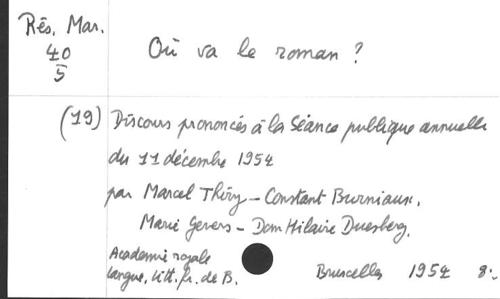 Rés. Mar.
40
5
Où va le roman ?
(19) Discours prononcés à la Séance publique annuelle
du 11 décembre 1954
par Marcel Thiry - Constant Burniaux,
Marie Gevers - Dom Hilaire Duesberg.
Académie royale
langue, litt. fr. de B.
Bruxelles 1954 8:-